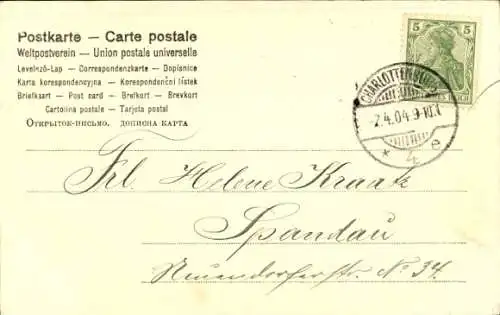 Postkarte – Carte postale
Weltpostverein – Union postale universelle
Levelező-Lap – Correspondenzkarte – Dopisnice
Karta korespondencyjna – Korespondenční lístek
Briefkaart – Post card – Brefkort – Brevkort
Cartolina postale – Tarjeta postal
Открытое письмо. дописна карта
5 5
CHARLOTTENBURG
2.4.04 9-10V.
* 4 e
Frl. Helene Kraatz
Spandau
Neuendorferstr. No 34.